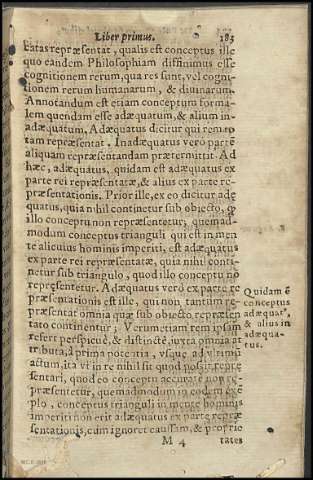 Liber primus. 183
eatas repræsentat, qualis est conceptus ille
quo eandem Philosophiam diffinimus esse
cognitionem rerum, qua res sunt, vel cogni-
tionem rerum humanarum, & diuinarum.
Annotandum est etiam conceptum forma-
lem quendam esse adæquatum, & alium in-
adæquatum, Adæquatus dicitur qui rem to
tam repræsentat. Inadæquatus vero partē
aliquam repræsentandam prætermittit. Ad
hæc, adæquatus, quidam est adæquatus ex
parte rei repræsentatæ, & alius ex parte re-
præsentationis. Prior ille, ex eo dicitur adę
quatus, quia nihil continetur sub obiecto,
illo conceptu non repræsentetur, quemad-
modum conceptus trianguli qui est in men
te alicuius hominis imperiti, est adæquatus
ex parte rei repræsentatæ, quia nihil conti-
netur sub triangulo, quod illo conceptu nō
repręsentetur. Adæquatus verò ex parte re
præsentationis est ille, qui non tantum re-
præsentat omnia quæ sub obiecto repræsen
tato continentur; Verum etiam rem ipsam
refert perspicuè, & distinctè, iuxta omnia at
tributa, à prima potentia, vsque ad vltimū
actum, ita vt in re nihil sit quod possit repræ
sentari, quod eo conceptu accurate non re-
præsentetur, quemadmodum in eodem exē
plo, conceptus trianguli in mente hominis
imperiti non erit adæquatus ex parte repræ
sentationis, cum ignoret caussam, & proprie
M 4 tates
Quidam ē
conceptus
adæquat,
& alius in
adæqua-
tus.